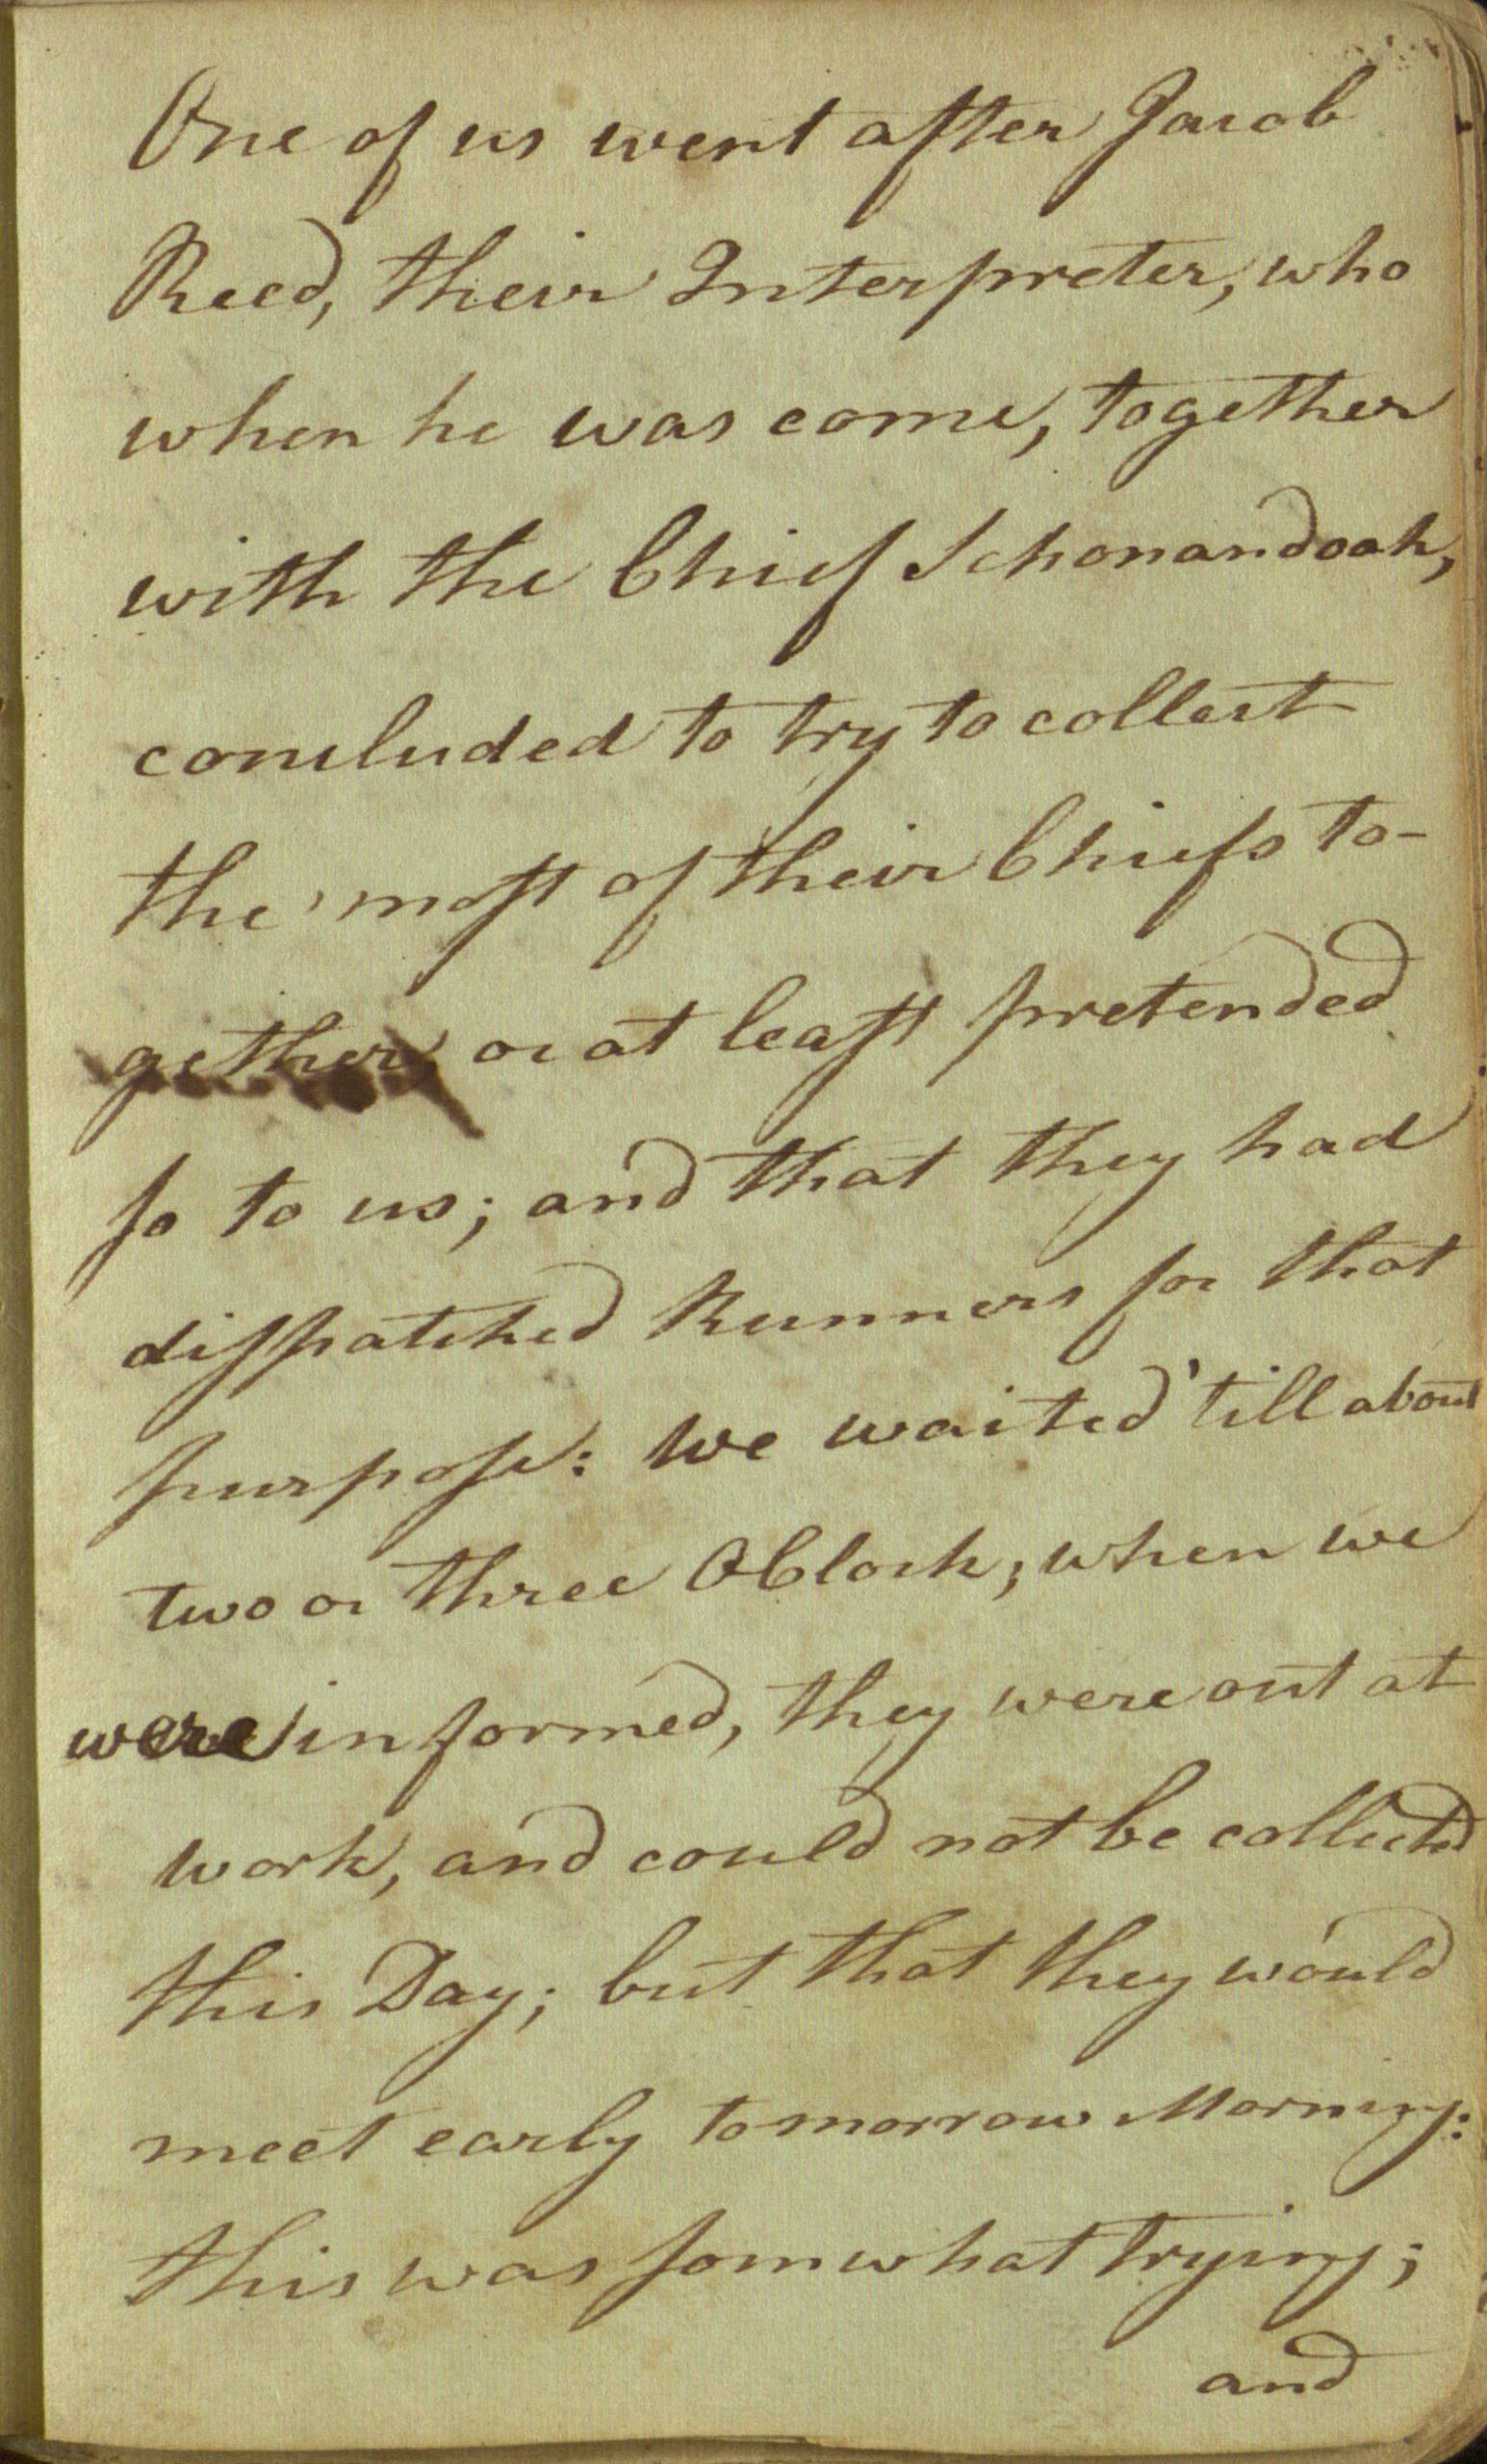 One of us went after Jacob
Reed, their Interpreter, who
when he was come, together
with the Chief Schonandoah,
concluded to try to collect
the most of their Chiefs to-
gether, or at least pretended
so to us; and that they had
dispatched Runners for that
purpose: We waited 'till about
two or three OClock, when we
were informed, they were out at
work, and could not be collected
this Day; but that they would
meet early tomorrow Morning:
this was somwhat trying;
and